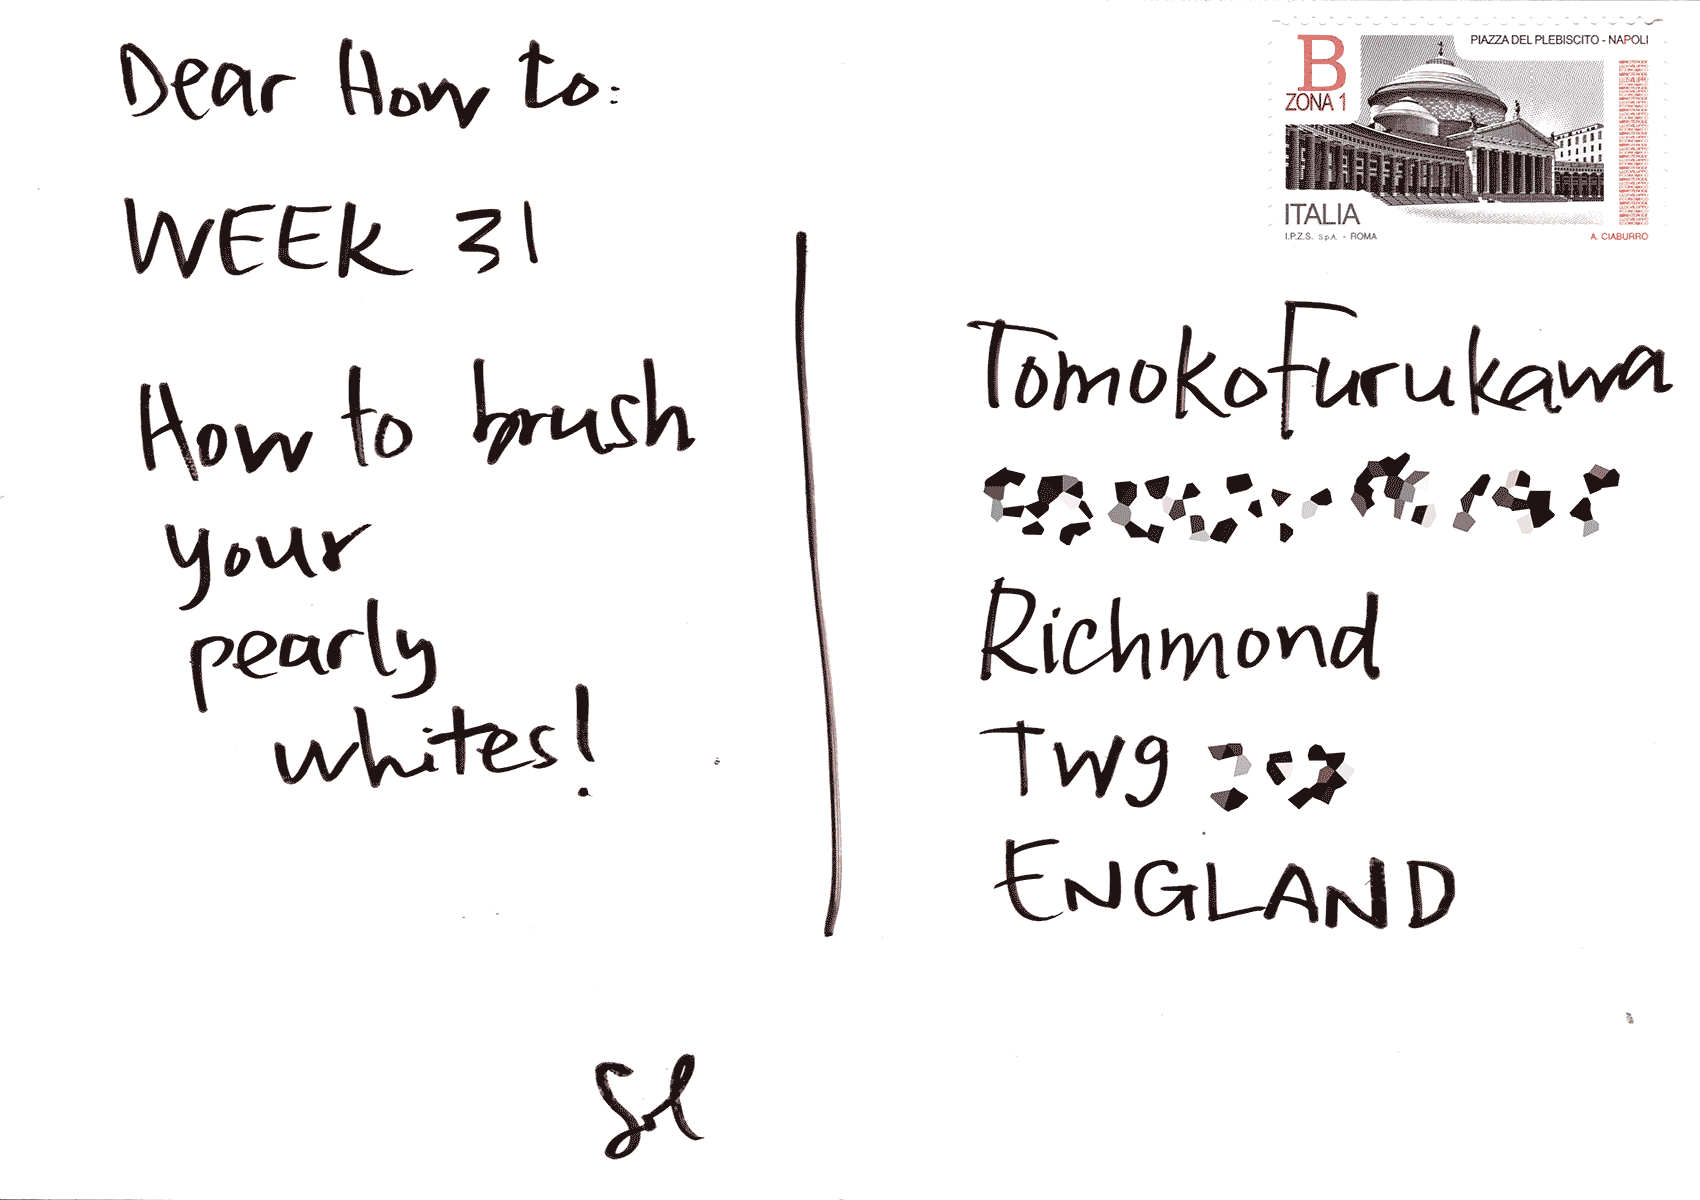 Dear How to:
WEEK 31
How to brush
your
pearly
whites!
Sol
B
ZONA 1
PIAZZA DEL PLEBISCITO - NAPOLI
ITALIA
I.P.Z.S. S.p.A. - ROMA
A. CIABURRO
Tomoko Furukawa
Richmond
TW9
ENGLAND